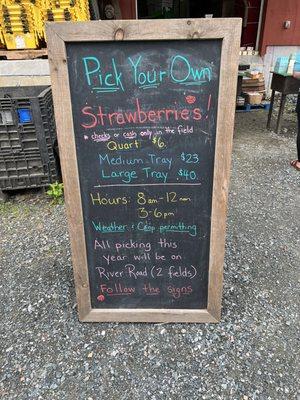 Pick Your Own
Strawberries!
* checks or cash only in the field
Quart $6.
Medium Tray $23
Large Tray $40.
Hours: 8am-12 noon
3-6pm
Weather & Crop permitting
All picking this
year will be on
River Road (2 fields)
Follow the signs